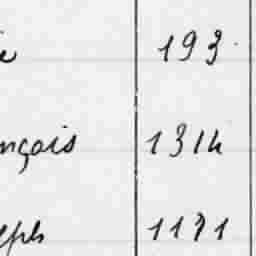 193
nçois 1314
eph 1171